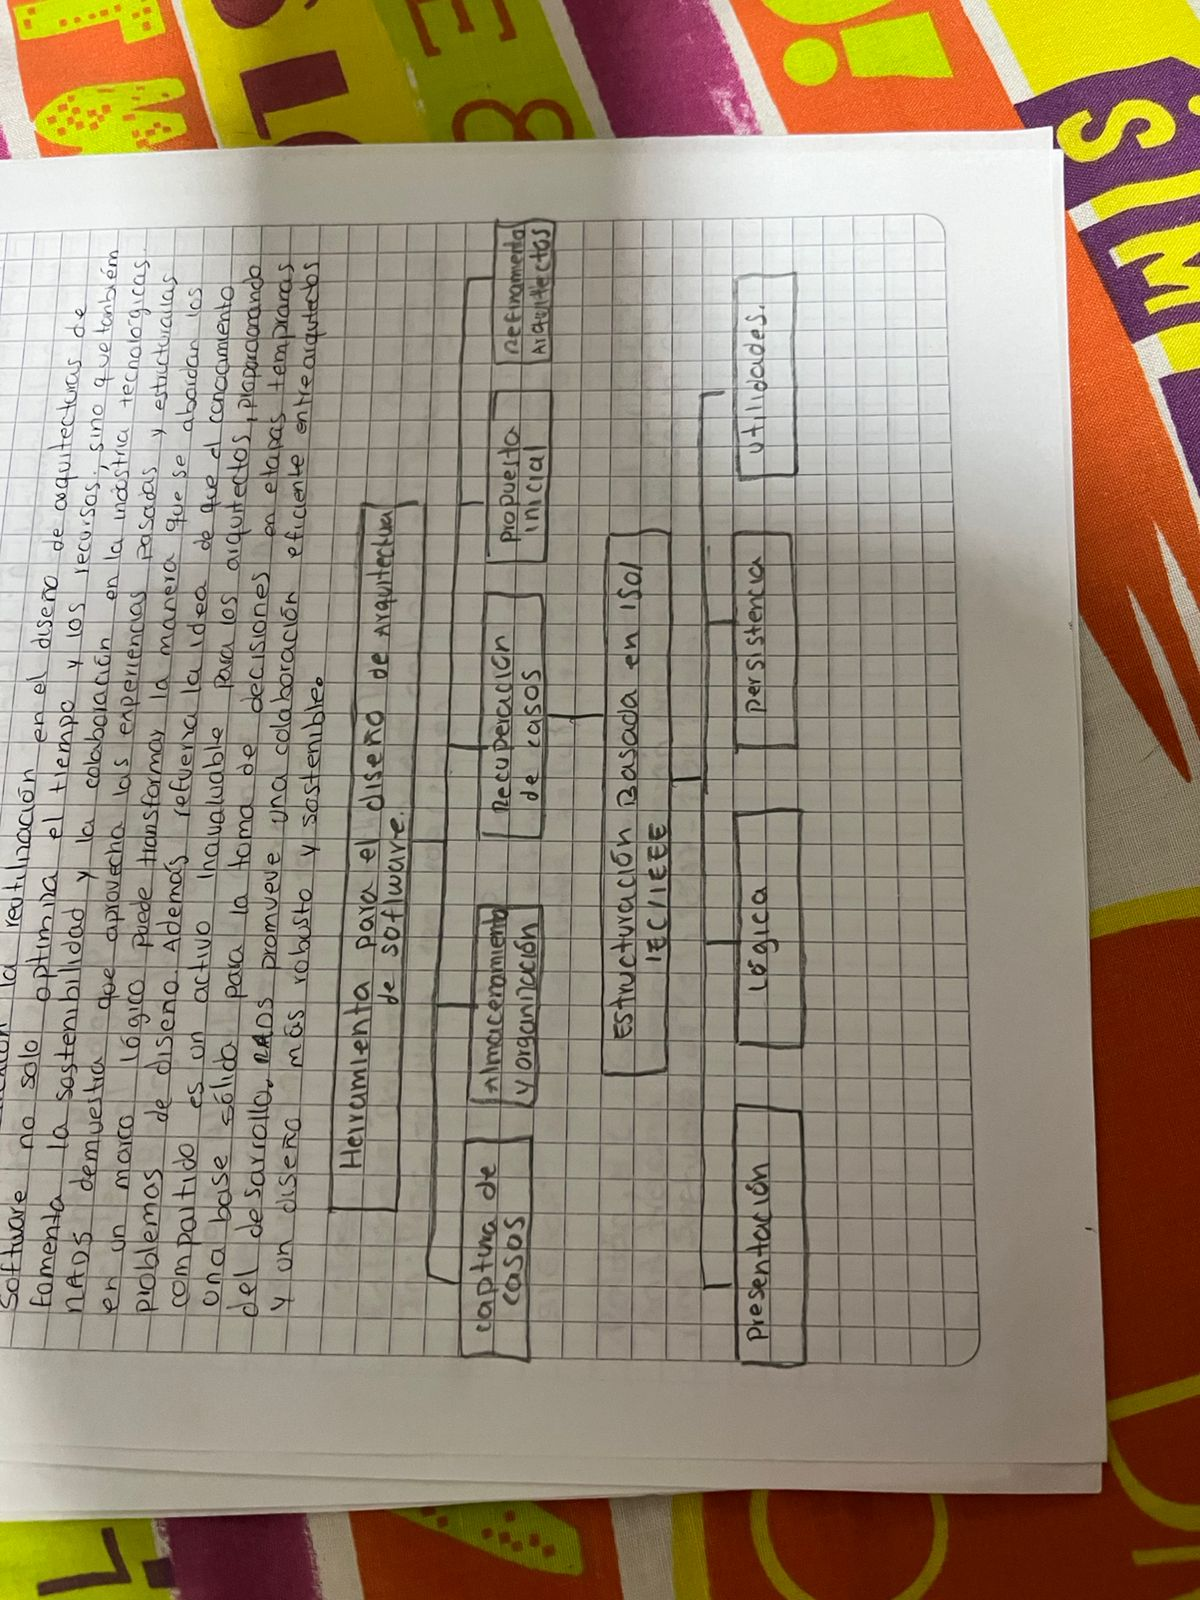 la reutilización en el diseño de arquitecturas de
software no solo optimiza el tiempo y los recursos, sino que también
fomenta la sostenibilidad y la colaboración en la industria tecnológicas.
RADS demuestra que aprovecha las experiencias pasadas y estructurarlas
en un marco lógico puede transformar la manera que se abordan los
problemas de diseño. Además, refuerza la idea de que el conocimiento
compartido es un activo invaluable para los arquitectos, proporcionando
una base sólida para la toma de decisiones en etapas tempranas
del desarrollo. RADS promueve una colaboración eficiente entre arquitectos
y un diseño más robusto y sostenible.
Herramienta para el diseño de Arquitectura
de software.
captura de
casos
Almacenamiento
y organización
Recuperación
de casos
propuesta
inicial
Refinamiento
Arquitectos
Estructuración Basada en ISO/
IEC/IEEE
Presentación
Lógica
persistencia
utilidades.
SIM